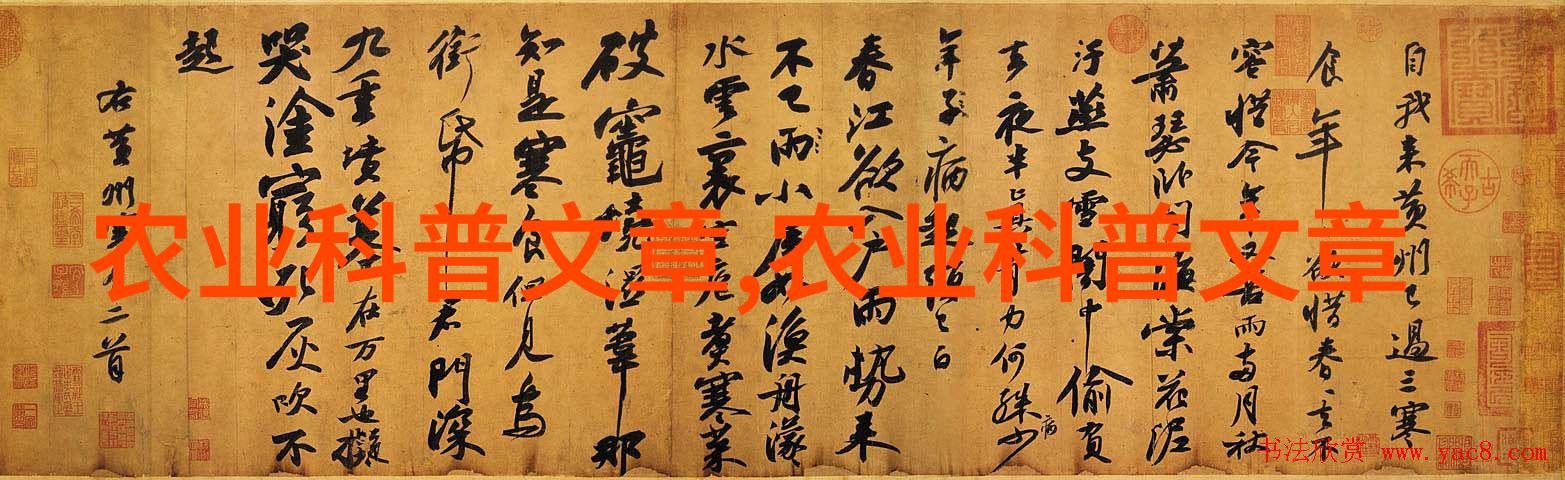 自我来黄州已過三寒
食年欲惜春去不
容惜今年又苦雨兩月秋
蕭瑟卧聞海棠花泥
汙燕支雪闇中偷負
去夜半真有力何殊少
病
年子病起頭已白
春江欲入戶雨勢来
不已雨小屋如漁舟濛
水雲裏空庖煮寒菜
破竈燒濕葦那
知是寒食但見烏
銜帋君門深
九重墳墓在万里也擬
哭塗窮死灰吹不
起
右黄州寒食二首
农业科普文章,农业科普文章
书法欣赏 www.yac8.com